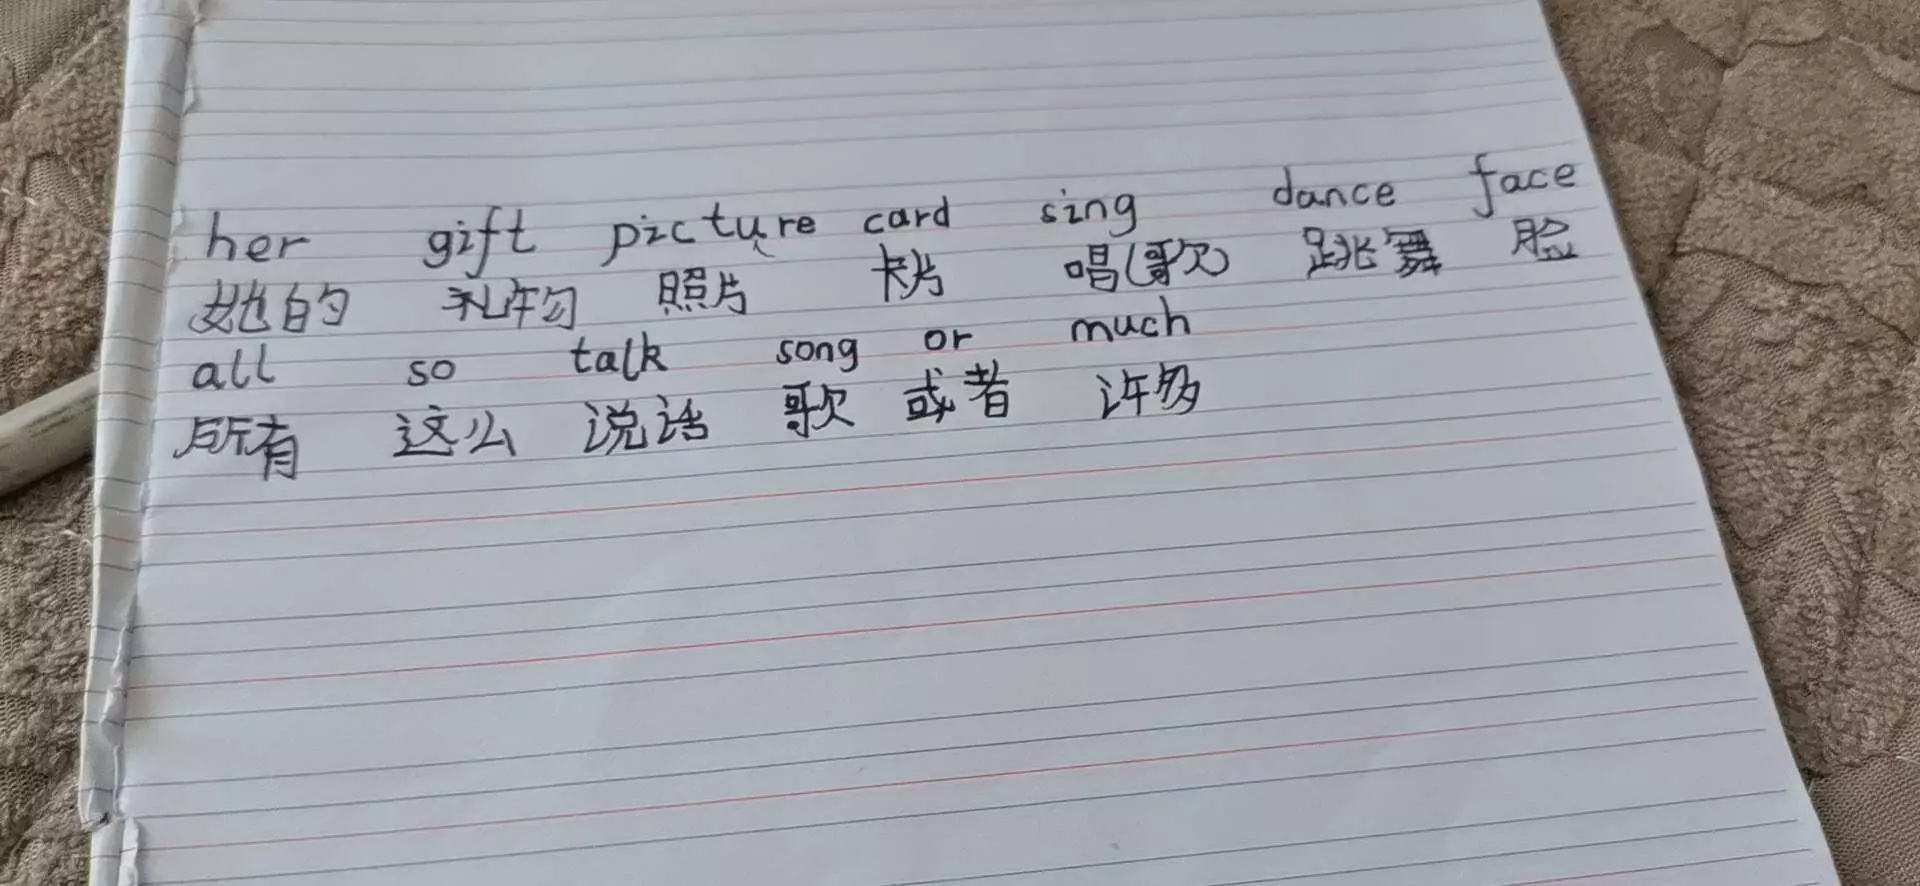 her gift picture card sing dance face
她的 礼物 照片 卡片 唱(歌) 跳舞 脸
all so talk song or much
所有 这么 说话 歌 或者 许多